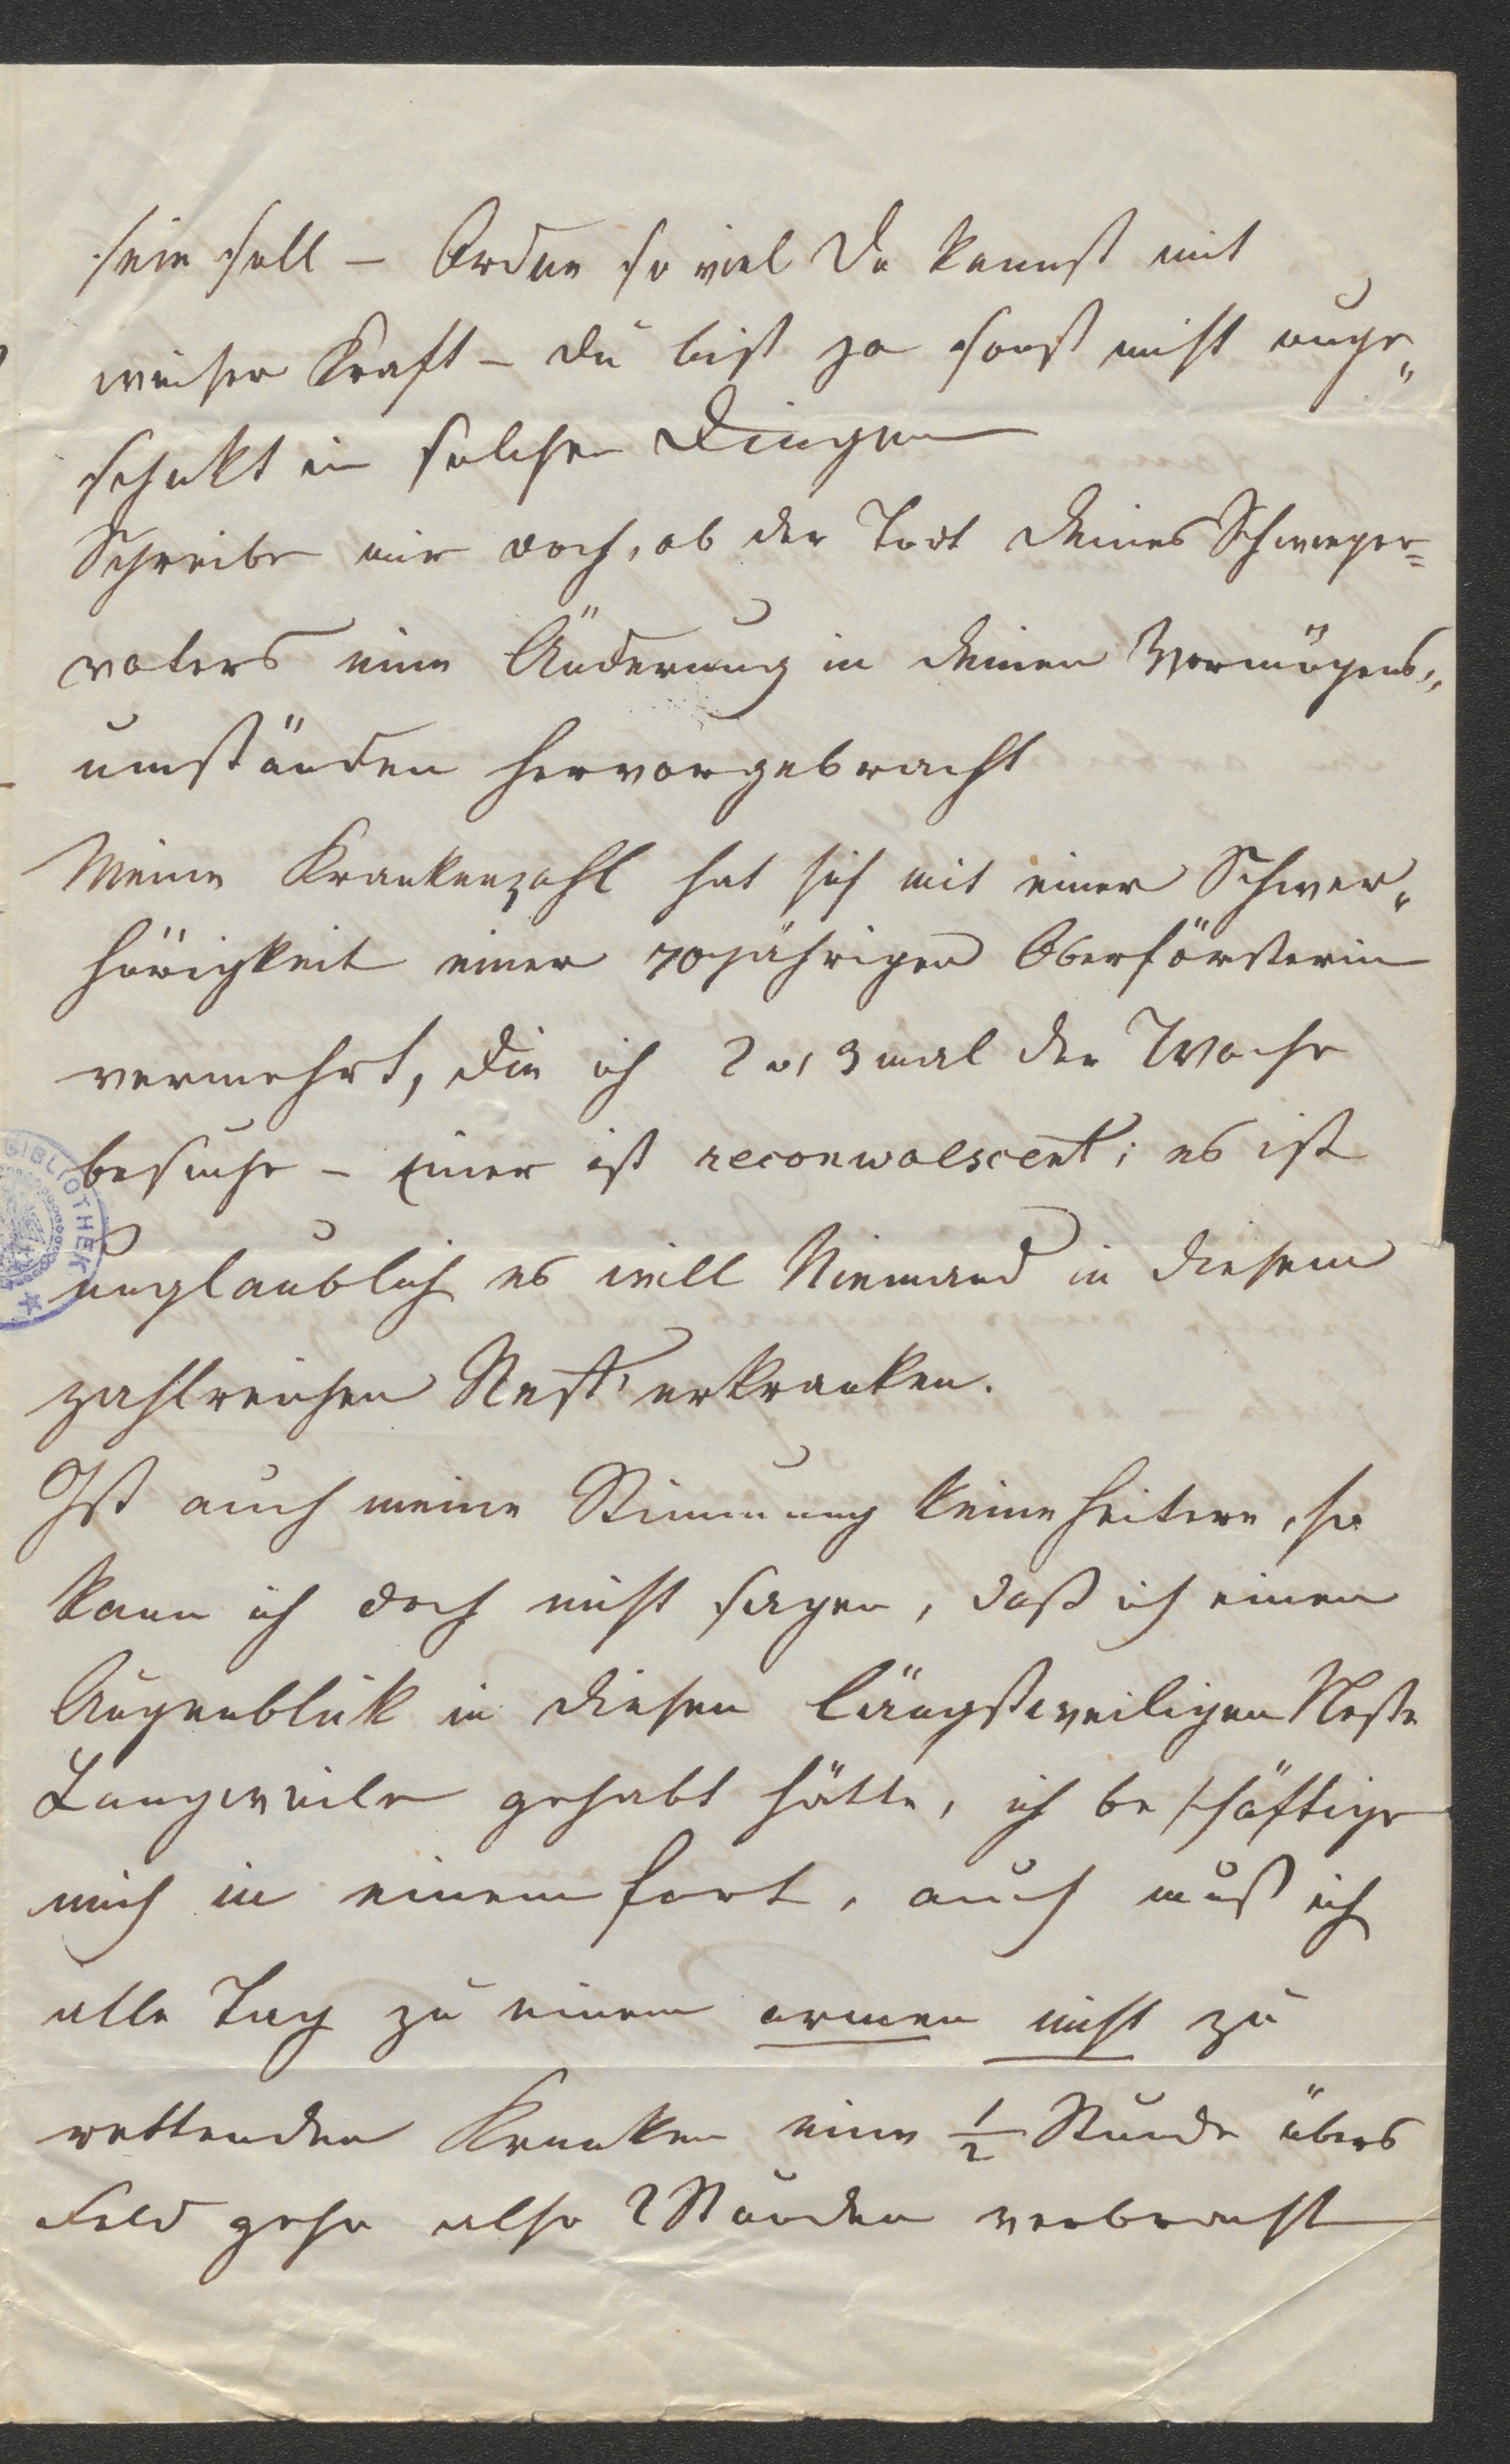 sein soll – Ordne so viel Du kannst mit
weiser Kraft – du bist ja sonst nicht unge„
schikt in solchen Dingen
Schreibe mir doch, ob der Todt Deines Schwieger=
vaters eine Änderung in deinen Vermögens„
umständen hervorgebracht
Meine Krankenzahl hat sich mit einer Schwer„
hörigkeit einer 70jährigen Oberförsterin
vermehrt, die ich 2 o, 3 mal der Woche
besuche – Einer ist reconwalescent; es ist
unglaublich es will Niemand in diesem
zahlreichen Nest erkranken.
Ist auch meine Stimmung keine heitere, so
kann ich doch nicht sagen, daß ich einen
Augenblik in diesen längstweiligen Neste
Langweile gehabt hätte, ich beschäftige
mich in einem fort, auch muß ich
alle Tag zu einem armen nicht zu
rettenden Kranken eine ½ Stunde übers
Feld gehn also 2 Stunden verbracht
BIBLIOTHEK